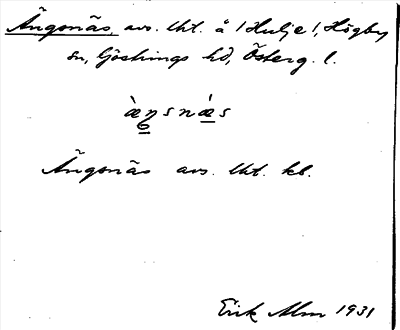 Ängsnäs, avs. lht. å /Hulje/, Högby
sn, Göstrings hd, Österg. l.
æ̀ŋsnǽs
Ängsnäs avs. lht. kb.
Erik Alm 1931